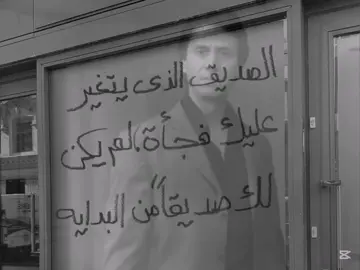 الصديق الذى يتغير
عليك فجأة، لم يكن
لك صديقاً من البدايه